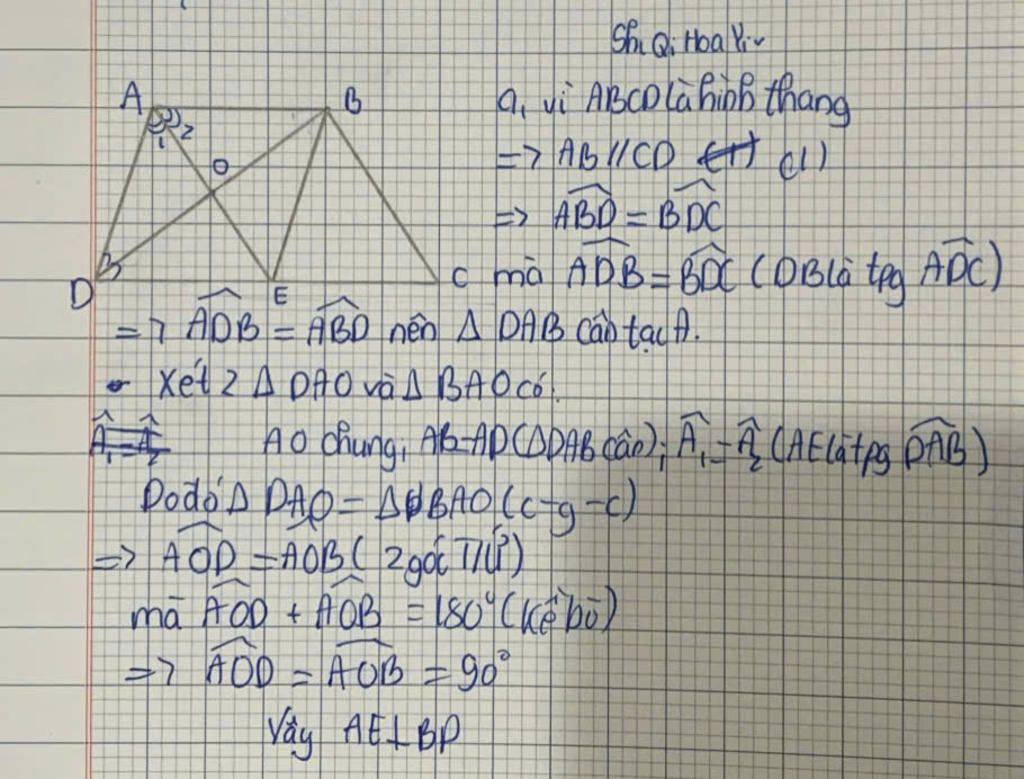 Shi Qi Hoa Yi
A B
a, vì ABCD là hình thang
1 2
O
=> AB // CD (1)
=> ABD̂ = BDĈ
D E C
mà ADB̂ = BDĈ (DB là tpg ADĈ)
=> ADB̂ = ABD̂ nên Δ DAB cân tại A.
- Xét 2 Δ DAO và Δ BAO có:
AO chung; AB=AD (ΔDAB cân); Â₁ = Â₂ (AE là tpg DAB̂)
Do đó Δ DAO = Δ BAO (c-g-c)
=> AOD̂ = AOB̂ ( 2 góc T/Ư)
mà AOD̂ + AOB̂ = 180° (kề bù)
=> AOD̂ = AOB̂ = 90°
Vậy AE ⊥ BD